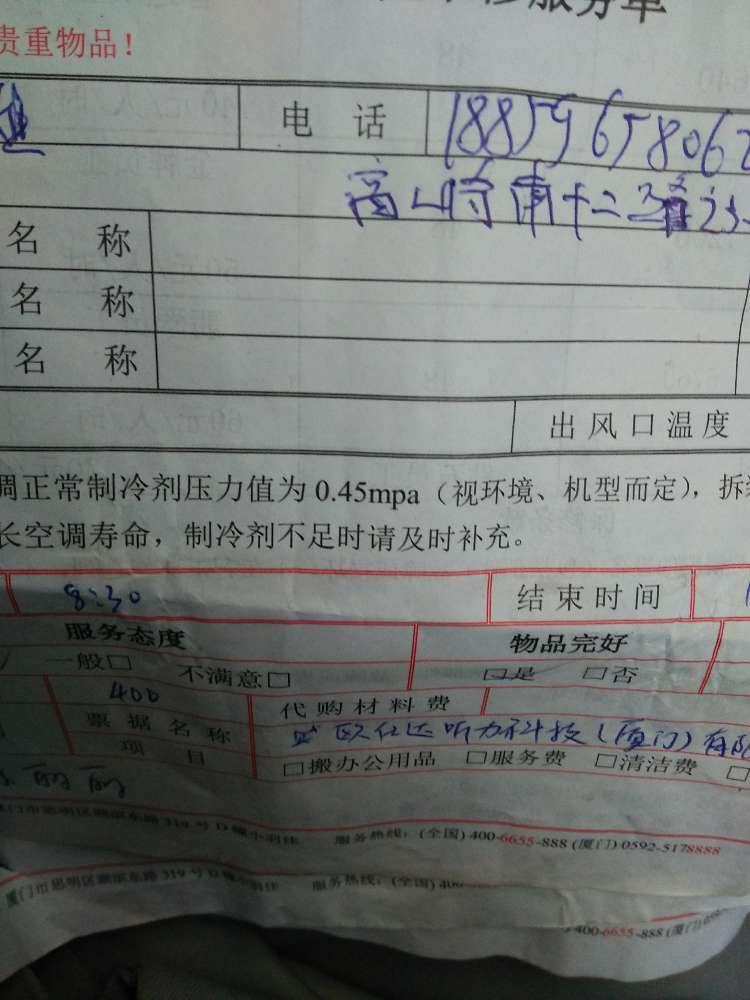 服务单
贵重物品！
电 话 18859658062
名 称
名 称
名 称
出风口温度
调正常制冷剂压力值为 0.45mpa（视环境、机型而定），拆
长空调寿命，制冷剂不足时请及时补充。
8:30 结束时间
服务态度 物品完好
一般□ 不满意□ □是 □否
400 代购材料费
票据名称 欧仕达听力科技（厦门）有限
项 目 □搬办公用品 □服务费 □清洁费 □
319 号 D 幢小羽佳 服务热线：(全国) 400-6655-888 (厦门) 0592-5178888
厦门市思明区 319 号 D 幢小羽佳 服务热线：(全国) 40
400-6655-888 (厦门) 059